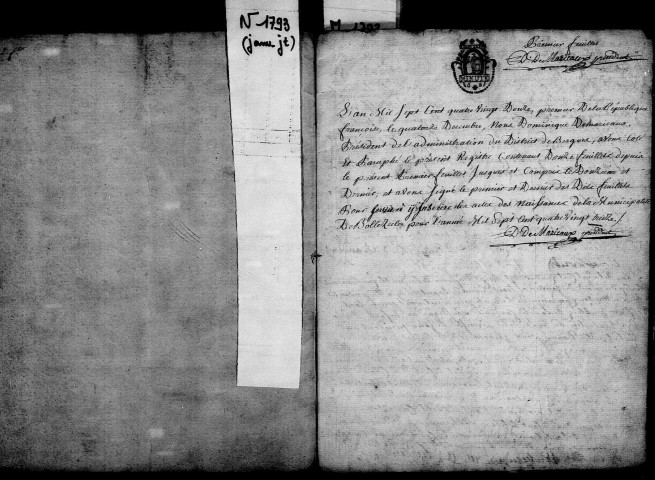 N 1793
(janv jt)
M 1792
Premier feuillet
D. DeMaricaux président
MINUTE
L'an Mil Sept Cent quatre Vingt Douze, premier De la République
françoise, le quatorze Decembre, Nous Dominique Demaricaux,
Président de l'administration du District de Bergues, avons Coté
et Paraphé le présent Registre Contenant Douze feuillets depuis
le présent Premier feuillet Jusques et Compris le Douzieme et
Dernier, et avons Signé le premier et Dernier des Dits feuillets
Pour servir y Inscrire les actes des Naissances de la Municipalité
De Bollezeele pour l'année Mil Sept Cent quatre Vingt treize /.
D. DeMaricaux président